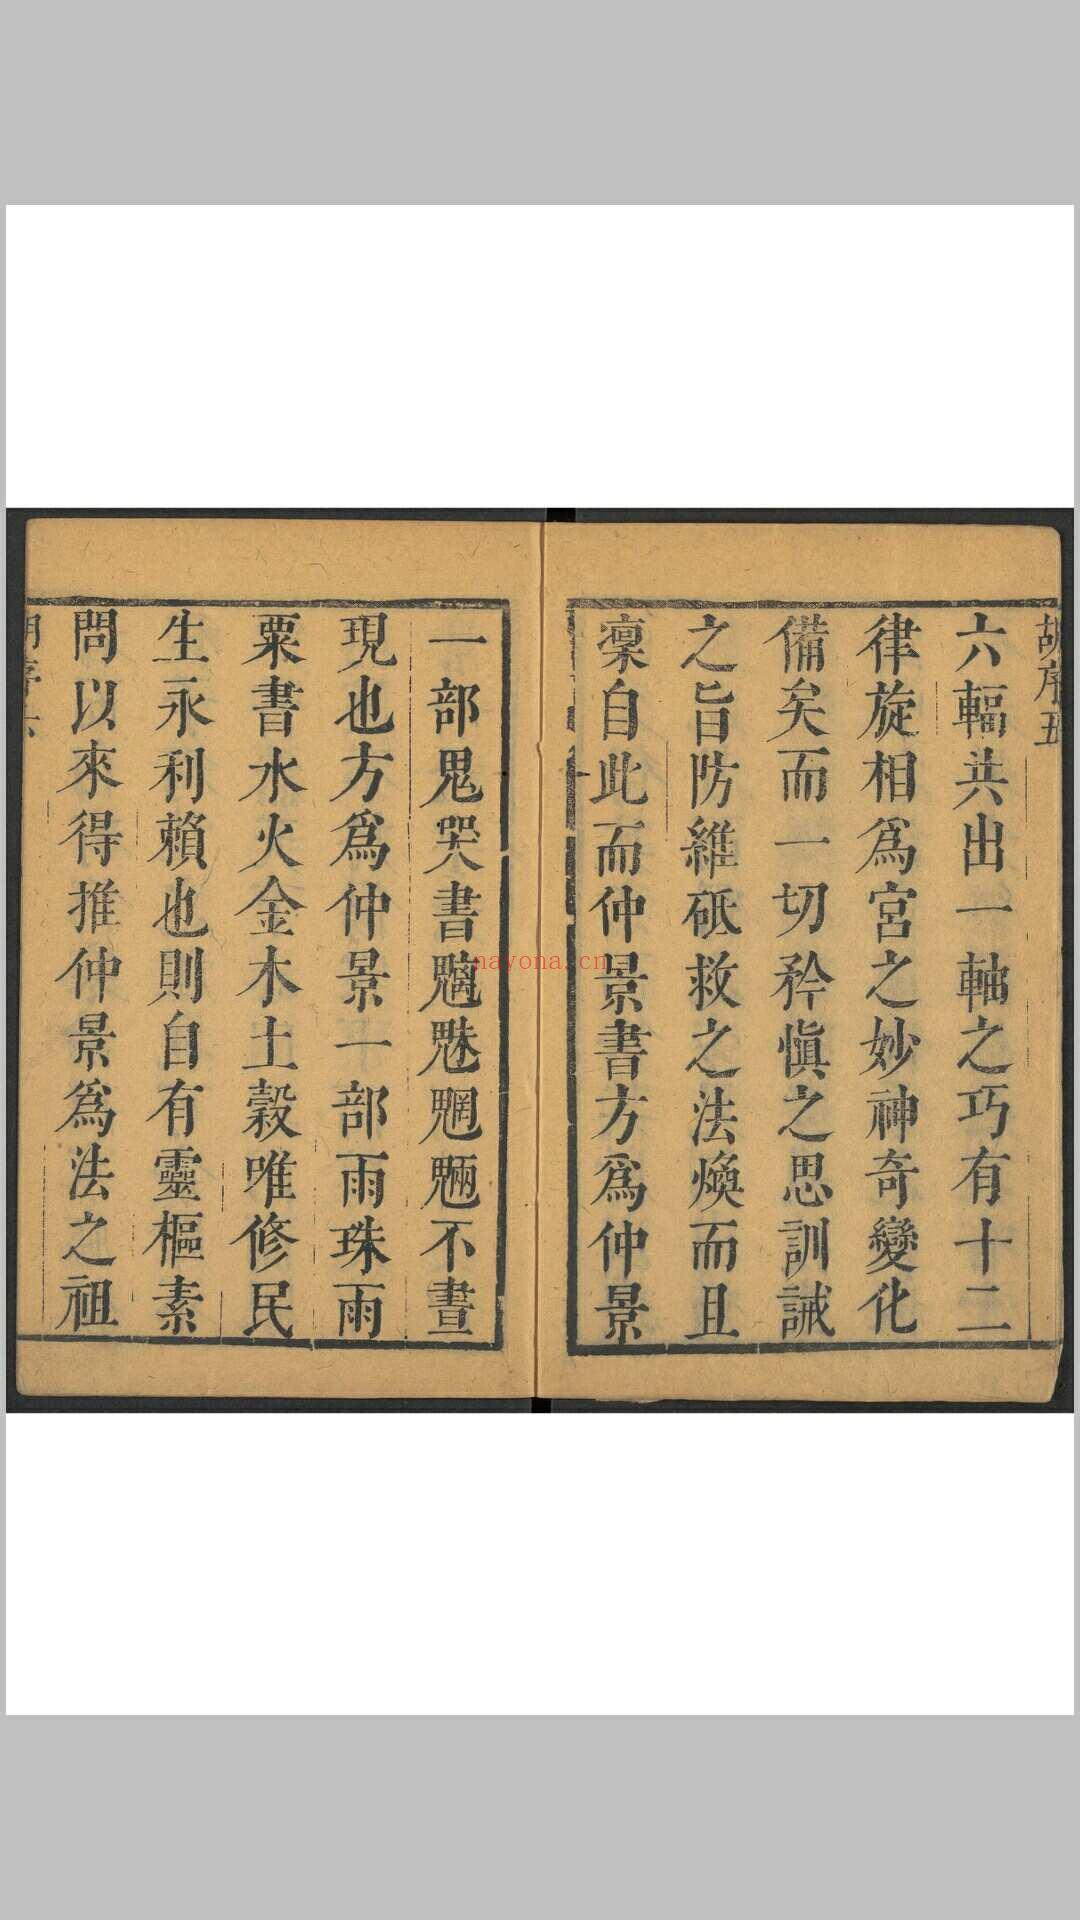 胡序五
六輻共出一軸之巧有十二
律旋相爲宮之妙神奇變化
備矣而一切矜慎之思訓誡
之旨防維砥救之法煥而且
凜自此而仲景書方爲仲景
一部鬼哭書魑魅魍魎不晝
現也方爲仲景一部雨珠雨
粟書水火金木土穀唯修民
生永利賴也則自有靈樞素
問以來得推仲景爲法之祖
胡序六
nayona.cn